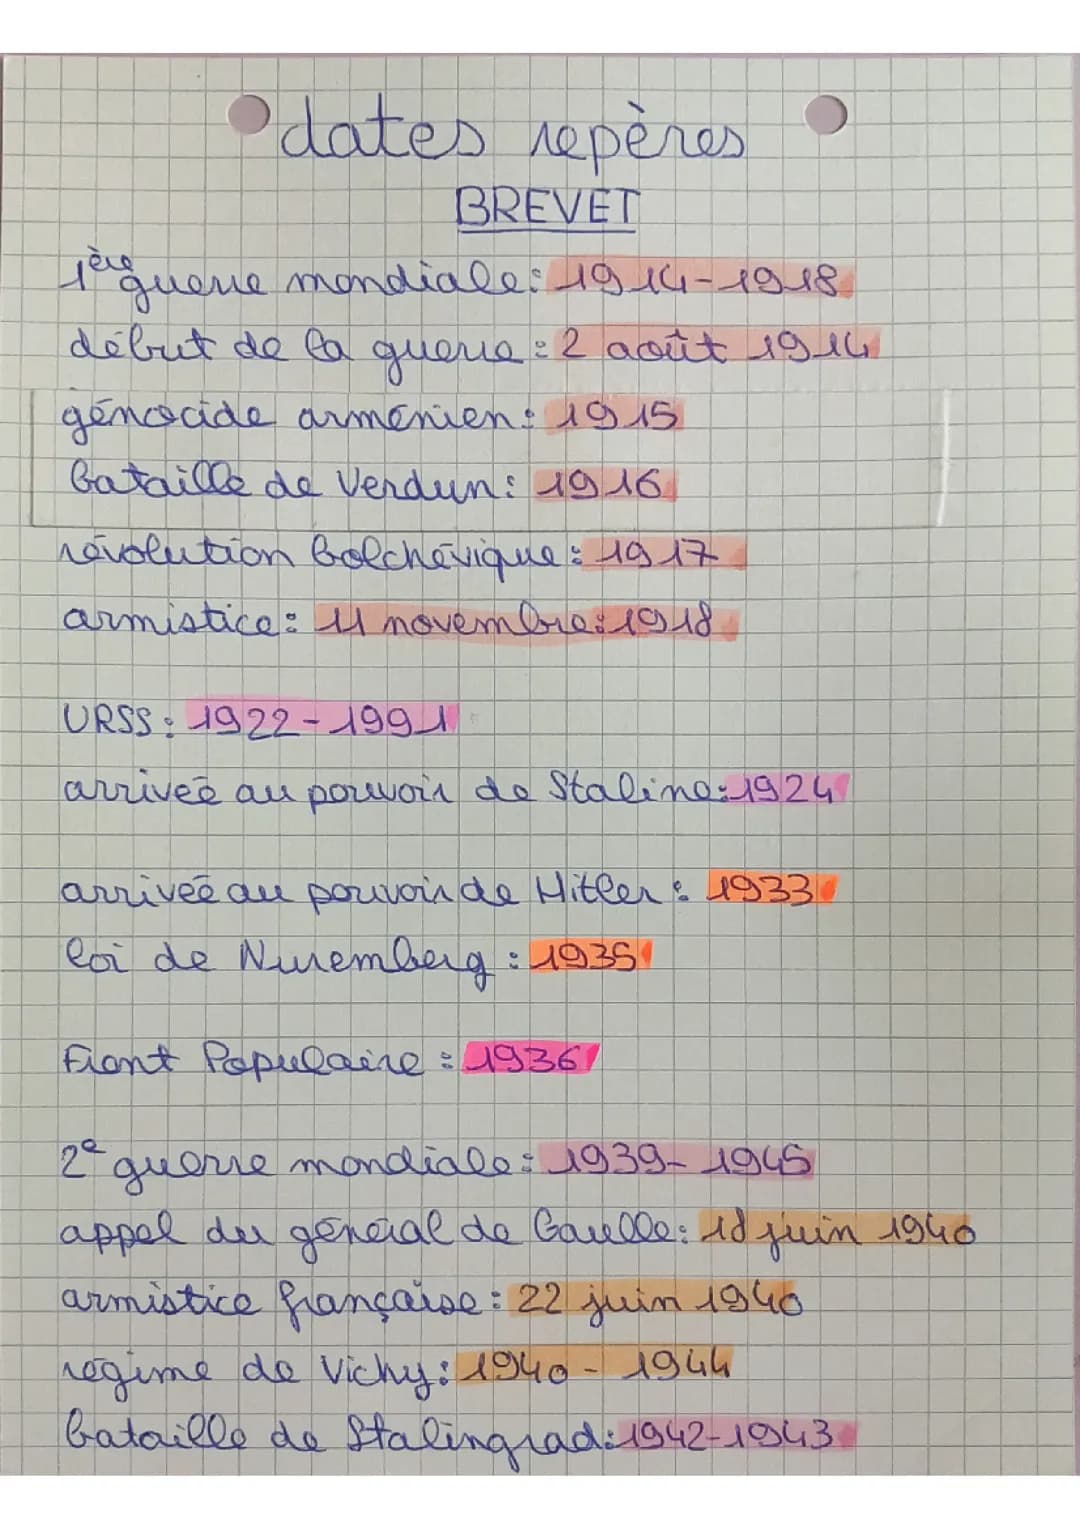 dates repères
BREVET
1ère guerre mondiale: 1914-1918
début de la guerre: 2 août 1914
génocide arménien: 1915
bataille de Verdun: 1916
révolution bolchévique: 1917
armistice: 11 novembre: 1918
URSS: 1922-1991
arriveé au pouvoir de Staline: 1924
arriveé au pouvoir de Hitler: 1933
loi de Nuremberg: 1935
Front Populaire: 1936
2e guerre mondiale: 1939-1945
appel du général de Gaulle: 18 juin 1940
armistice française: 22 juin 1940
régime de Vichy: 1940-1944
bataille de Stalingrad: 1942-1943